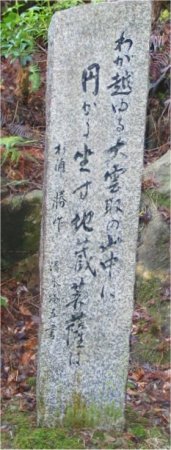 わが越ゆる大雲取の山中に
円かに坐す地蔵菩薩は
杉浦 勝 作